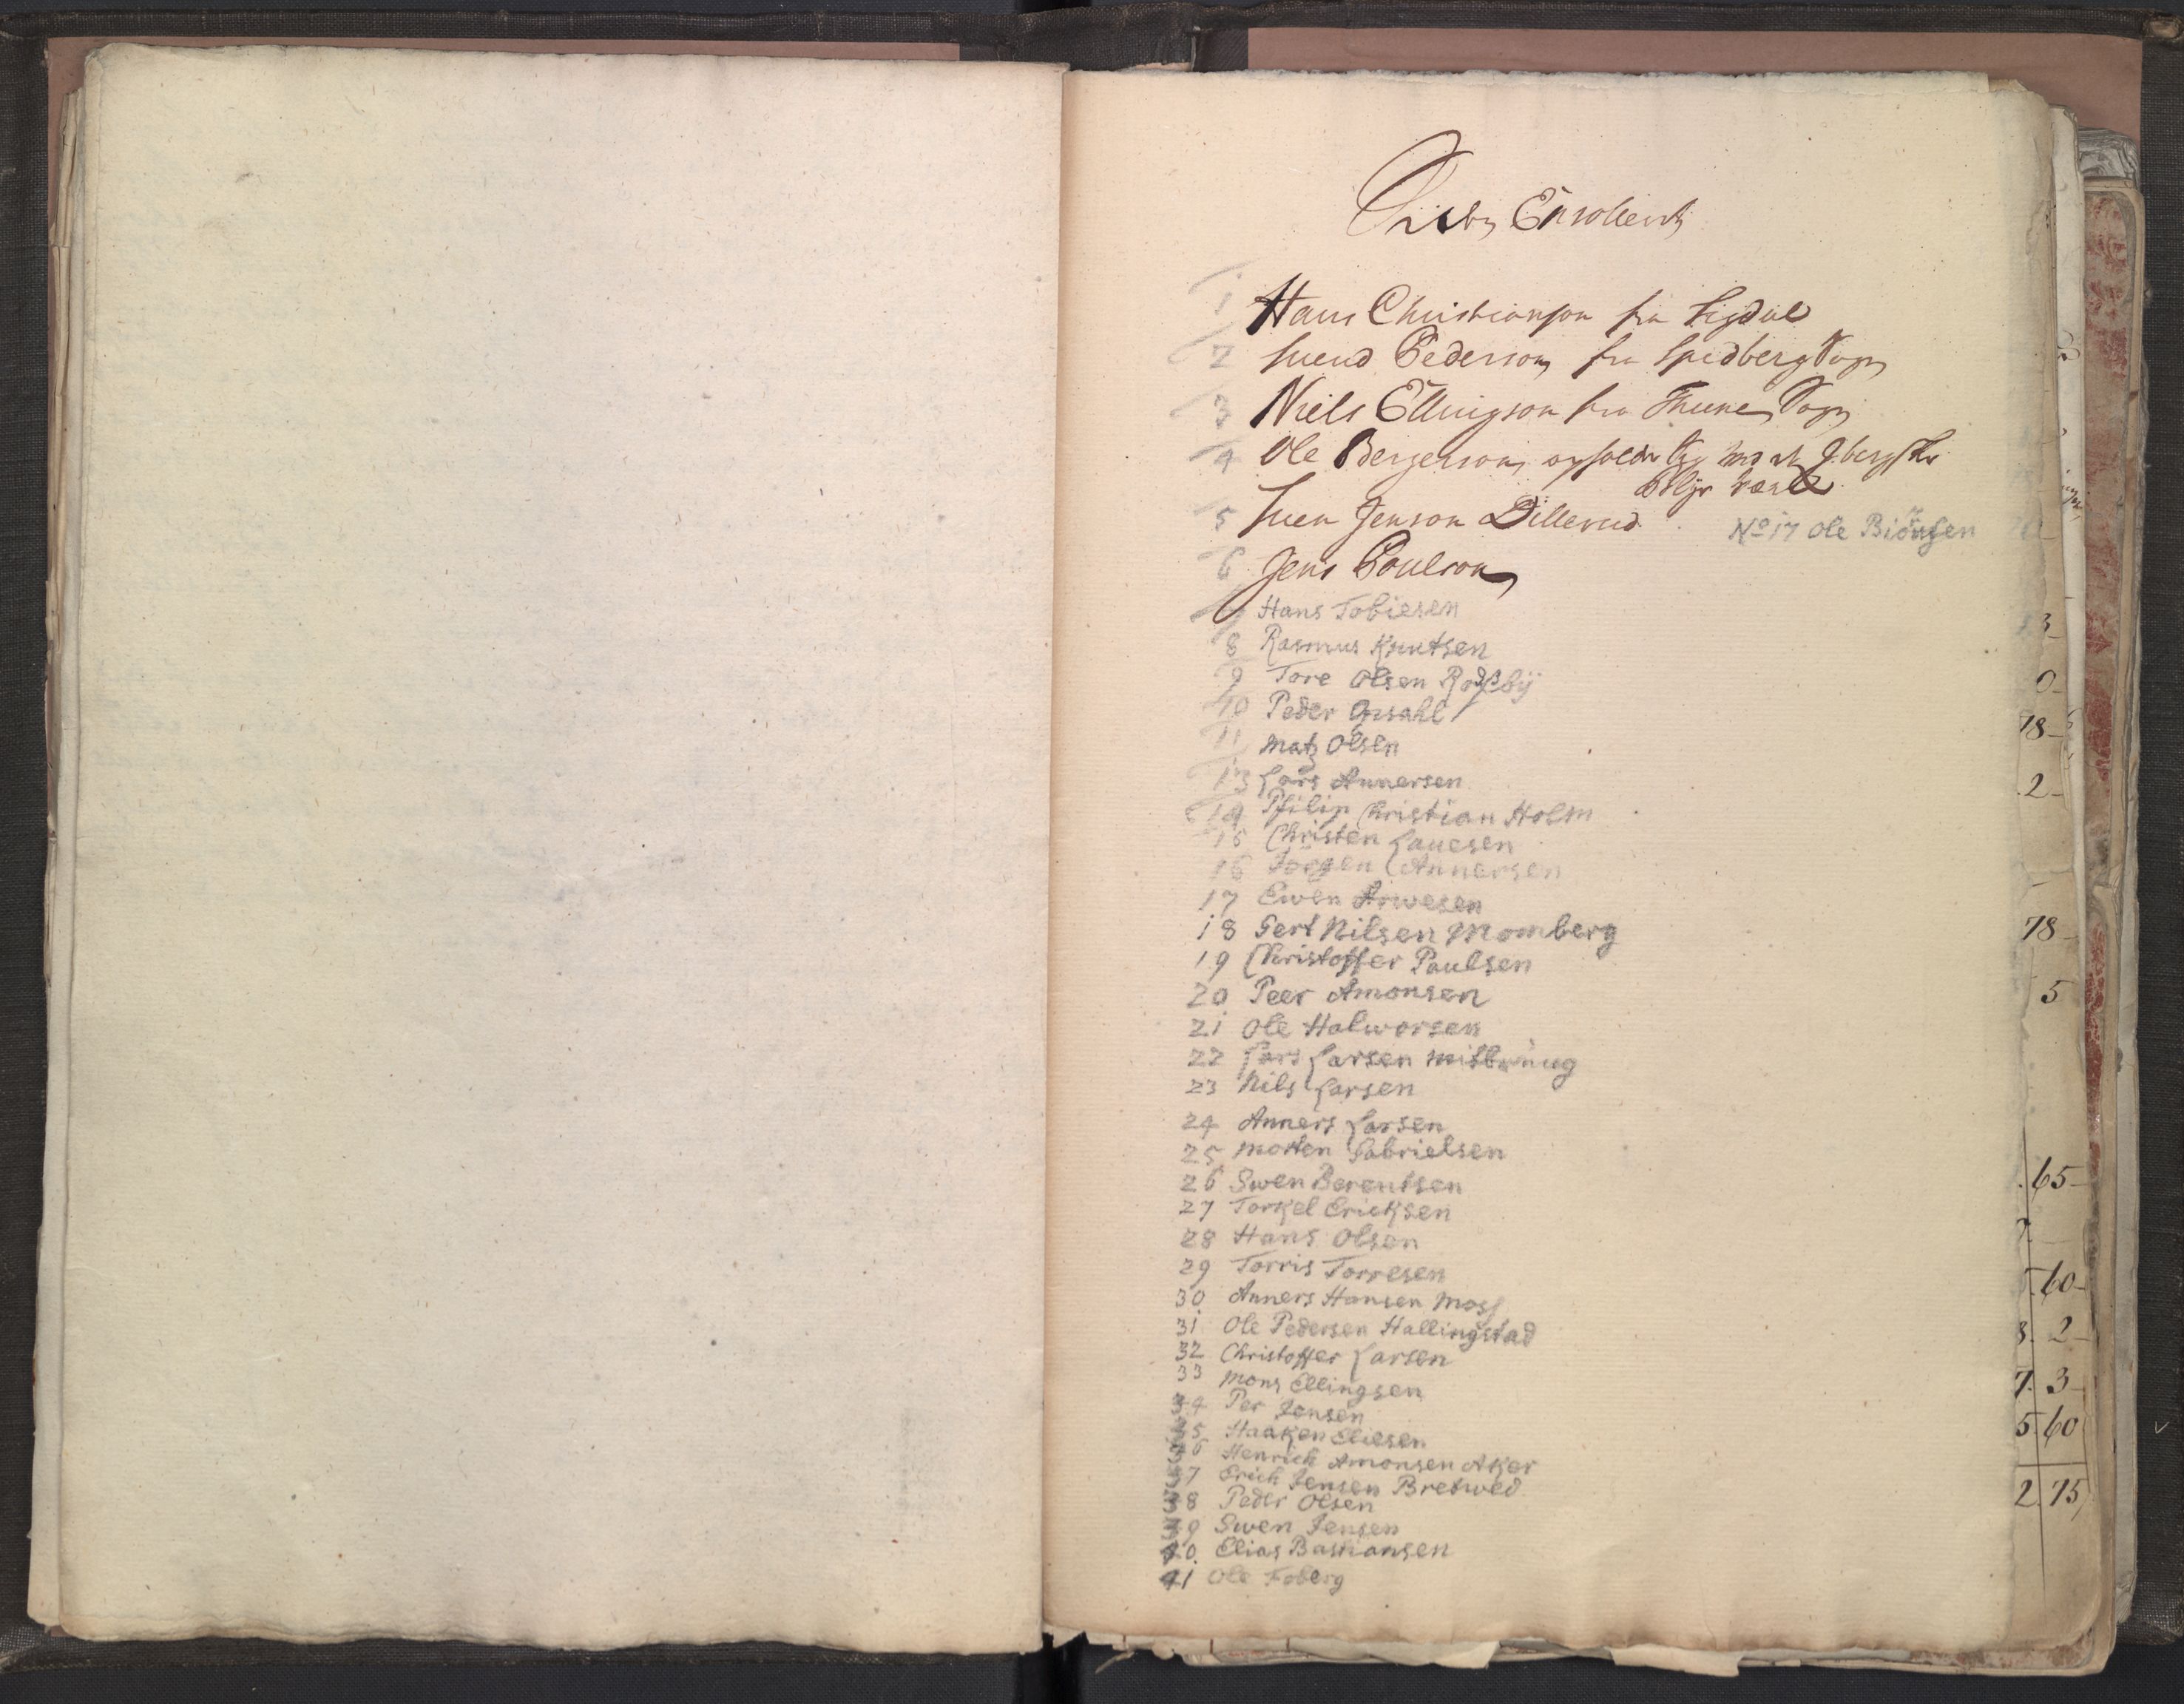 Enrollerede
1 Hans Christianson fra Sigdal
2 Svend Pederson fra Spidberg Sogn
3 Niels Ellingson fra Thune Sogn
4 Ole Bergerson
5 Suen Jenson Dillerud
No 17 Ole Biönsen
6 Jens Poulson
7 Hans Tobiesen
8 Rasmus Knutsen
9 Tore Olsen
10 Peder
11 Matz Olsen
13 Lars Annersen
14 Philip Christian Holm
15 Christen Lauesen
16 Jörgen Annersen
17 Ewen Arwesen
18 Gert Nilsen Momberg
19 Christoffer Paulsen
20 Peer Amonsen
21 Ole Halworsen
22 Lars Larsen
23 Nils Larsen
24 Anners Larsen
25 Morten Gabrielsen
26 Swen Berentsen
27 Torkel Ericksen
28 Hans Olsen
29 Torris Torresen
30 Anners Hansen Moss
31 Ole Pedersen Hallingstad
32 Christoffer Larsen
33 Mons Ellingsen
34 Per Jensen
35 Haaken Eliesen
36 Henrich Amonsen Aker
37 Erich Jensen Bretwed
38 Peder Olsen
39 Swen Jensen
40 Elias Bastiansen
41 Ole Foberg
3
0
78
2
78
5
65
60
8. 2
7. 3
5 60
2 75